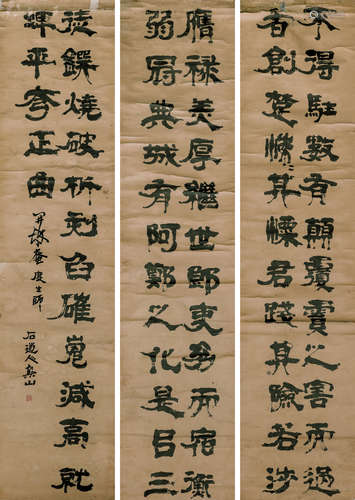 不得駐數有顛覆霣之害而過
者創楚惴其慄君踐其險若涉
膺祿美厚繼世郎吏幼而宿衛
弱冠典城有阿鄭之化是㠯三
徒鐉燒破析刻臽磪嵬減高就
埤平夷正曲
石道人